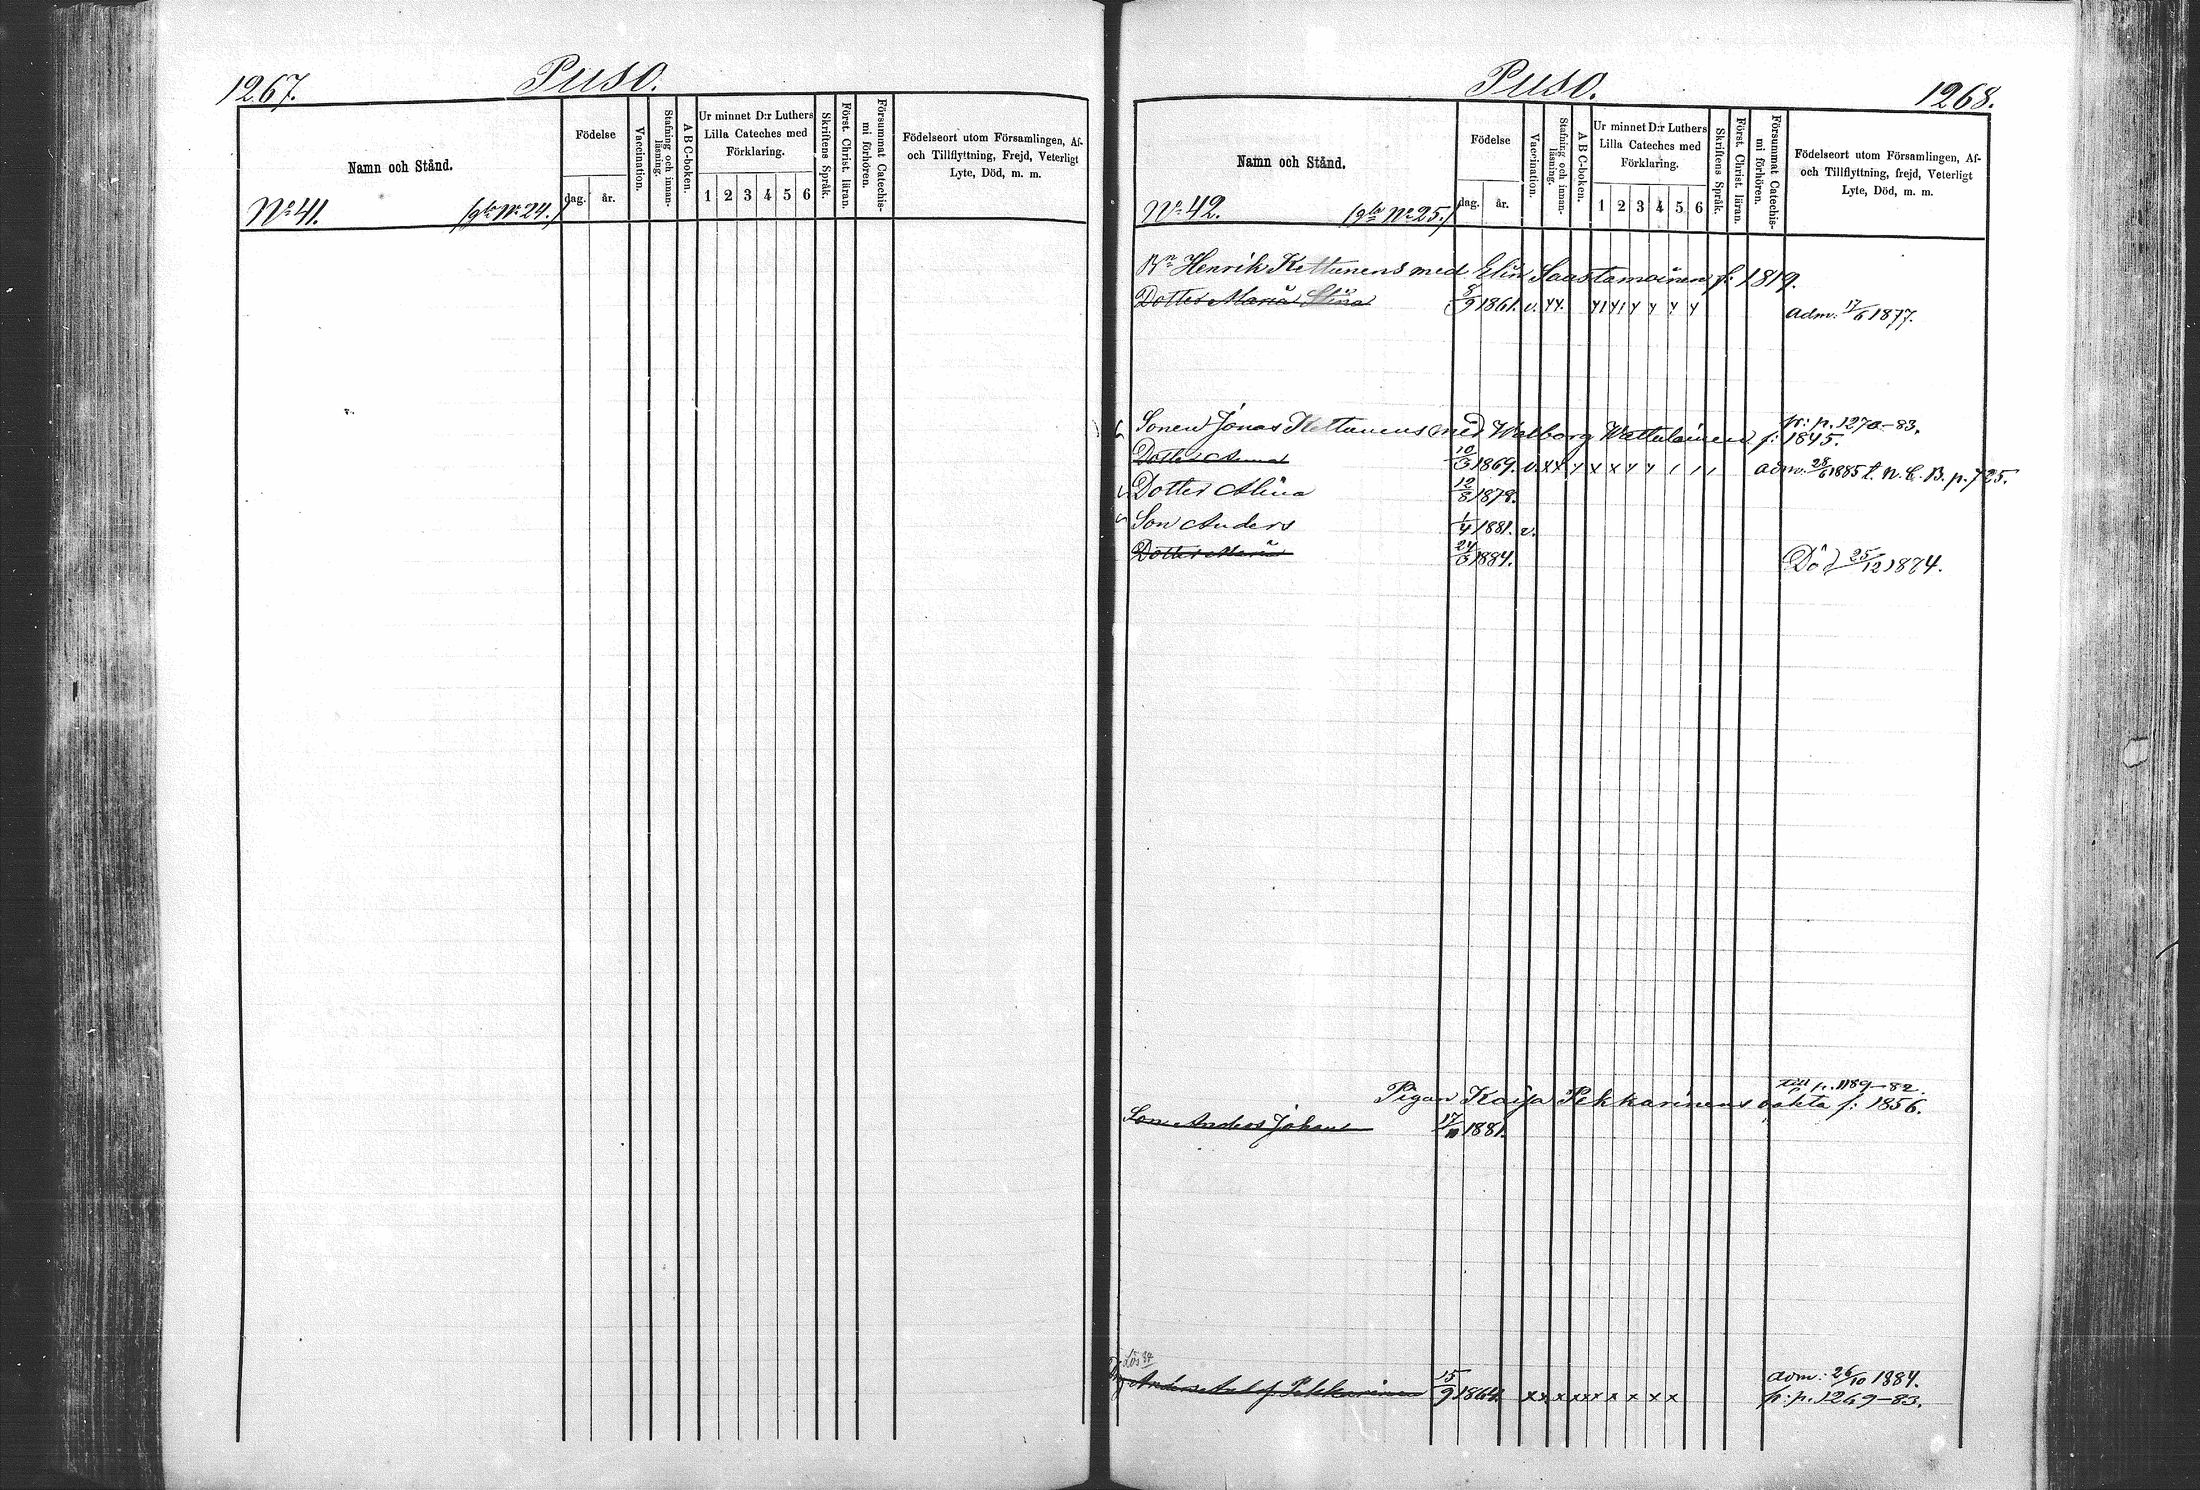 1267.
Puso.
Namn och Stånd.
Födelse
dag.
år.
Vaccination.
Stafning och innan-
läsning.
A B C-boken.
Ur minnet D:r Luthers
Lilla Cateches med
Förklaring.
1 2 3 4 5 6
Skriftens Språk.
Först. Christ. läran.
Försummat Catechis-
mi förhören.
Födelseort utom Församlingen, Af-
och Tillflyttning, Frejd, Veterligt
Lyte, Död, m. m.
No 41.
(gla No 24.)
Puso.
1268.
Namn och Stånd.
Födelse
dag.
år.
Vaccination.
Stafning och innan-
läsning.
A B C-boken.
Ur minnet D:r Luthers
Lilla Cateches med
Förklaring.
1 2 3 4 5 6
Skriftens Språk.
Först. Christ. läran.
Försummat Catechis-
mi förhören.
Födelseort utom Församlingen, Af-
och Tillflyttning, frejd, Veterligt
Lyte, Död, m. m.
No 42.
(gla No 25.)
Bn Henrik Kettunens med Elin Saastamoinen f: 1819.
Dotter Maria Stina 8/9 1861. v. adm: 17/6 1877.
fr: p. 1270-83.
Sonen Jonas Kettunens med Walborg Wattulainen f: 1845.
Dotter Anna 10/3 1869. v. x x adm. 28/6 1885 t. n. C. B. p. 725.
Dotter Alina 12/8 1878.
Son Anders 1/4 1881. v.
Dotter Maria 24/3 1884. Död 25/12 1884.
till p. 1189-82.
Pigan Kaisa Pekkarinens oäkta f: 1856.
Son Anders Johan 17/10 1881.
Anders And. f. Pekkarinen 15/9 1864. x x x x x x x x x x adm: 26/10 1884.
fr: p. 1269-83.